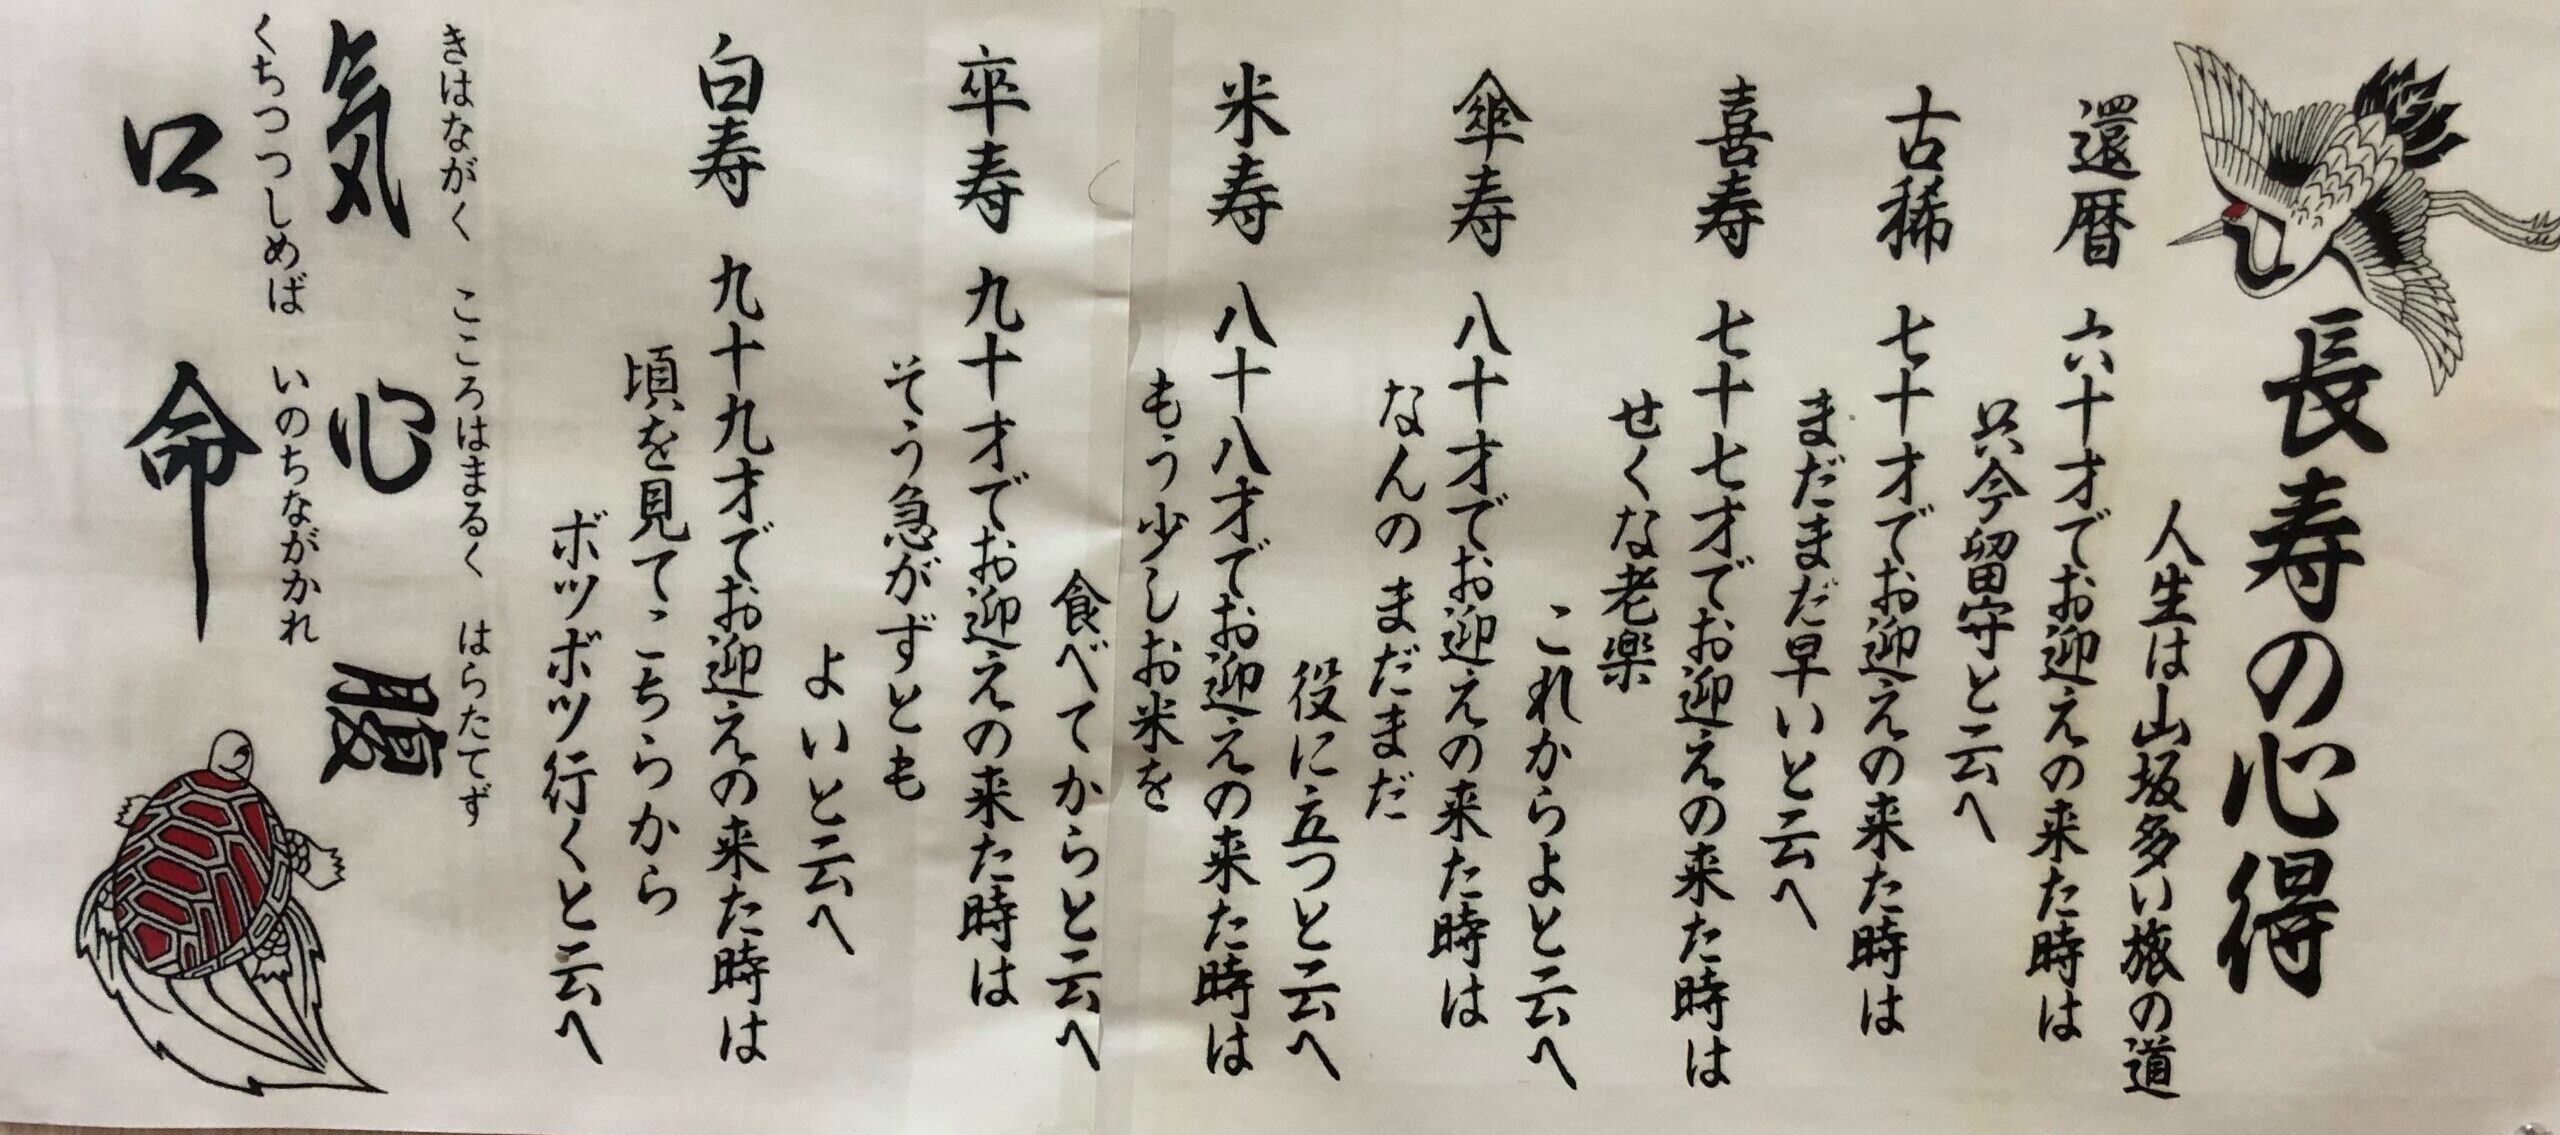 長寿の心得
人生は山坂多い旅の道
還暦 六十才でお迎えの来た時は
只今留守と云へ
古稀 七十才でお迎えの来た時は
まだまだ早いと云へ
喜寿 七十七才でお迎えの来た時は
せくな老楽
これからよと云へ
傘寿 八十才でお迎えの来た時は
なんのまだまだ
役に立つと云へ
米寿 八十八才でお迎えの来た時は
もう少しお米を
食べてからと云へ
卒寿 九十才でお迎えの来た時は
そう急がずとも
よいと云へ
白寿 九十九才でお迎えの来た時は
頃を見てこちらから
ボツボツ行くと云へ
きはながく こころはまるく はらたてず
気 心 腹
くちつつしめば いのちながかれ
口 命